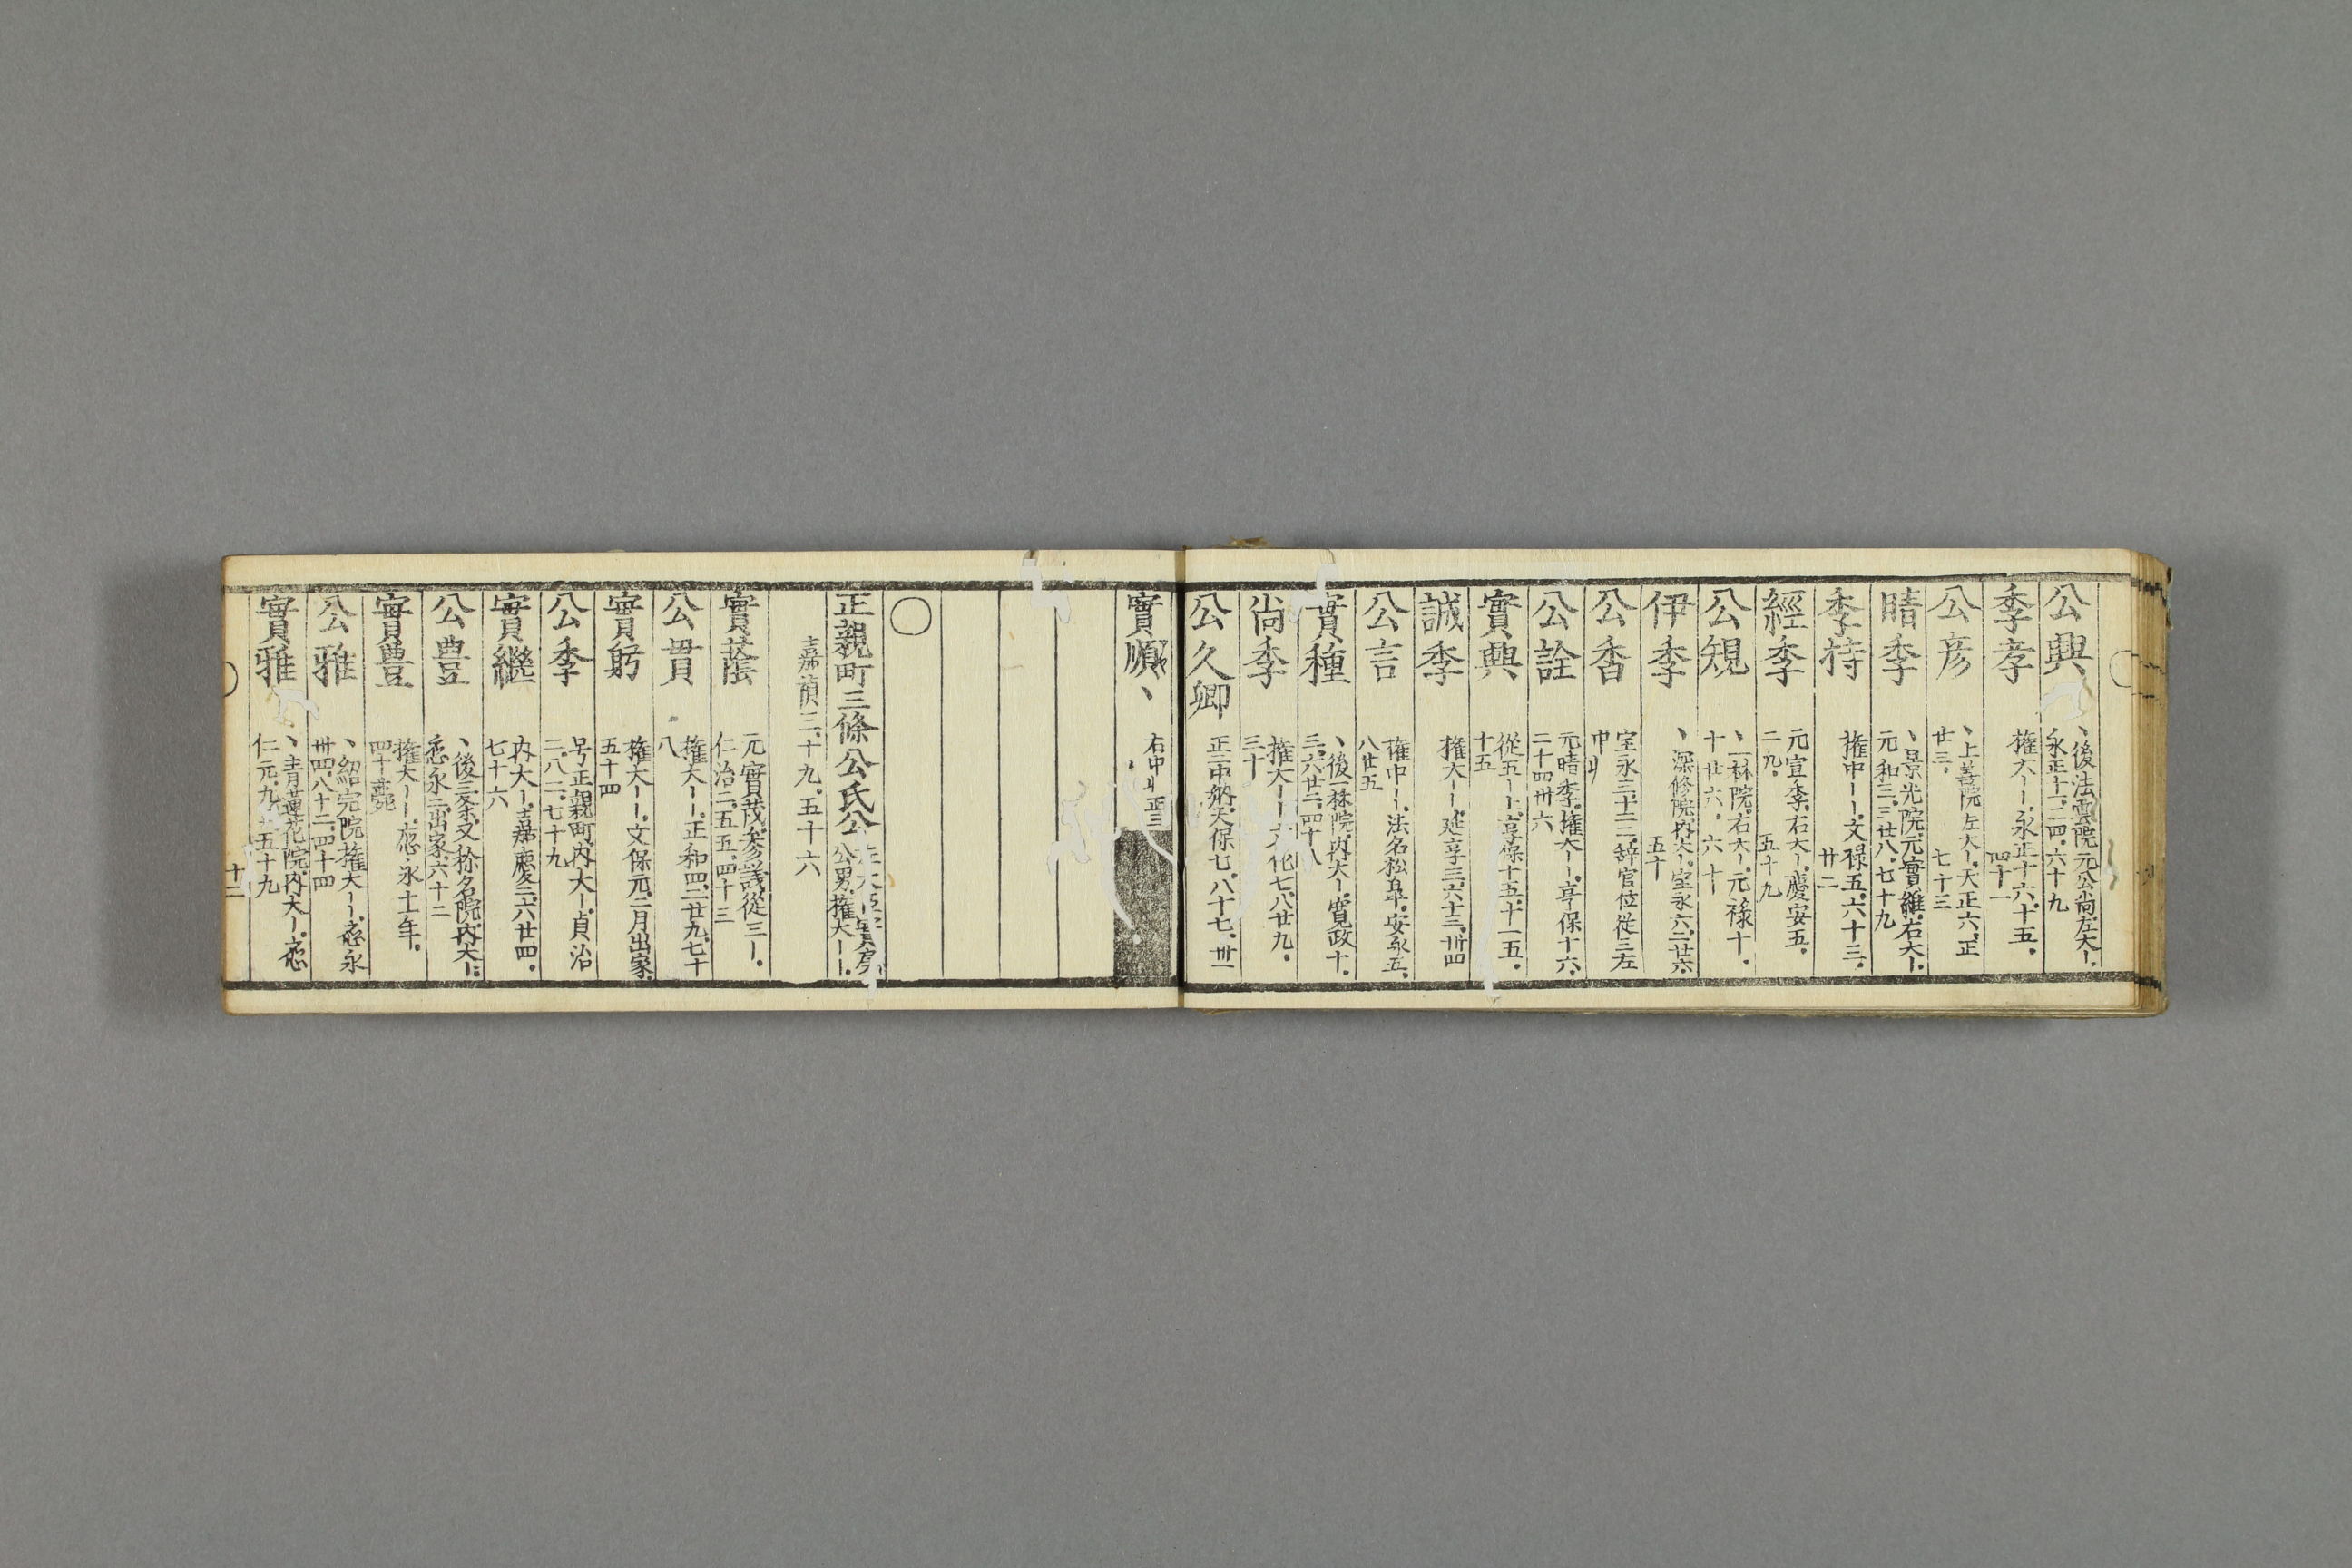 公興
丶後法雲院.元公尚.左大ー.
永正十一.二.四.六十九
季孝
権大ーー.永正十六.十五.
四十一
公彦
丶上善院.左大ー.天正六.正
廿三.七十三
晴季
丶景光院.元實維.右大ー.
元和三.三.廿八.七十九
季持
権中ーー.文禄五.六.十三.
廿二
經季
元宣季.右大ー.慶安五.
二.九.五十九
公規
丶一秝院.右大ー.元禄十.
十廿六.六十
伊季
丶深修院.内大ー.宝永六.二.廿六.
五十
公香
宝永三.十二.二.辞官位.從三左
中
公詮
元晴季.権大ー.享保十六.
二十四.卅六
實興
從五ー上.享保十五.十一.五.
十五
誠季
権大ーー.延享三.六.十三.卅四
公言
権中ーー.法名松皐.安永五.
八廿五
實種
丶後一秝院.内大ー.寛政十.
三.六廿二.四十八
尚季
権大ーー.文化七.八.廿九.
三十
公久卿
正三中納.天保七.八.十七.卅一
實順丶
右中 正三
〇
正親町三條公氏公
公男.権大ーー.
嘉禎三.十.九.五十六
實蔭
元實茂.参議從三ー.
仁治二.五.五.四十三
公貫
権大ーー.正和四.二.廿九.七十
八
實躬
権大ーー.文保元.二月出家.
五十四
公季
号正親町.内大ー.貞治
二.八.二.七十九
實繼
内大ー.嘉慶三.六.廿四.
七十六
公豊
丶後三条.又称名院.内大ー.
應永二.出家.六十二
實豊
権大ーー.應永十一年.
四十薨
公雅
丶紹完院.権大ーー.應永
卅四.八.十二.四十四
實雅
丶青蓮花院.内大ー.應
仁元.九. 五十九
十二